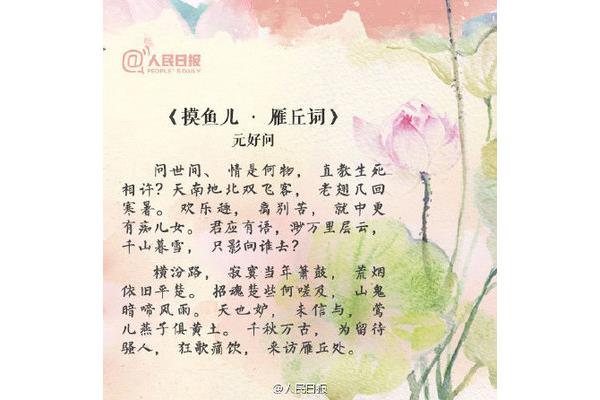 @人民日报
PEOPLE'S DAILY
《摸鱼儿 · 雁丘词》
元好问
问世间、情是何物，直教生死
相许？天南地北双飞客，老翅几回
寒暑。欢乐趣，离别苦，就中更
有痴儿女。君应有语，渺万里层云，
千山暮雪，只影向谁去？
横汾路，寂寞当年箫鼓，荒烟
依旧平楚。招魂楚些何嗟及，山鬼
暗啼风雨。天也妒，未信与，莺
儿燕子俱黄土。千秋万古，为留待
骚人，狂歌痛饮，来访雁丘处。
@人民日报